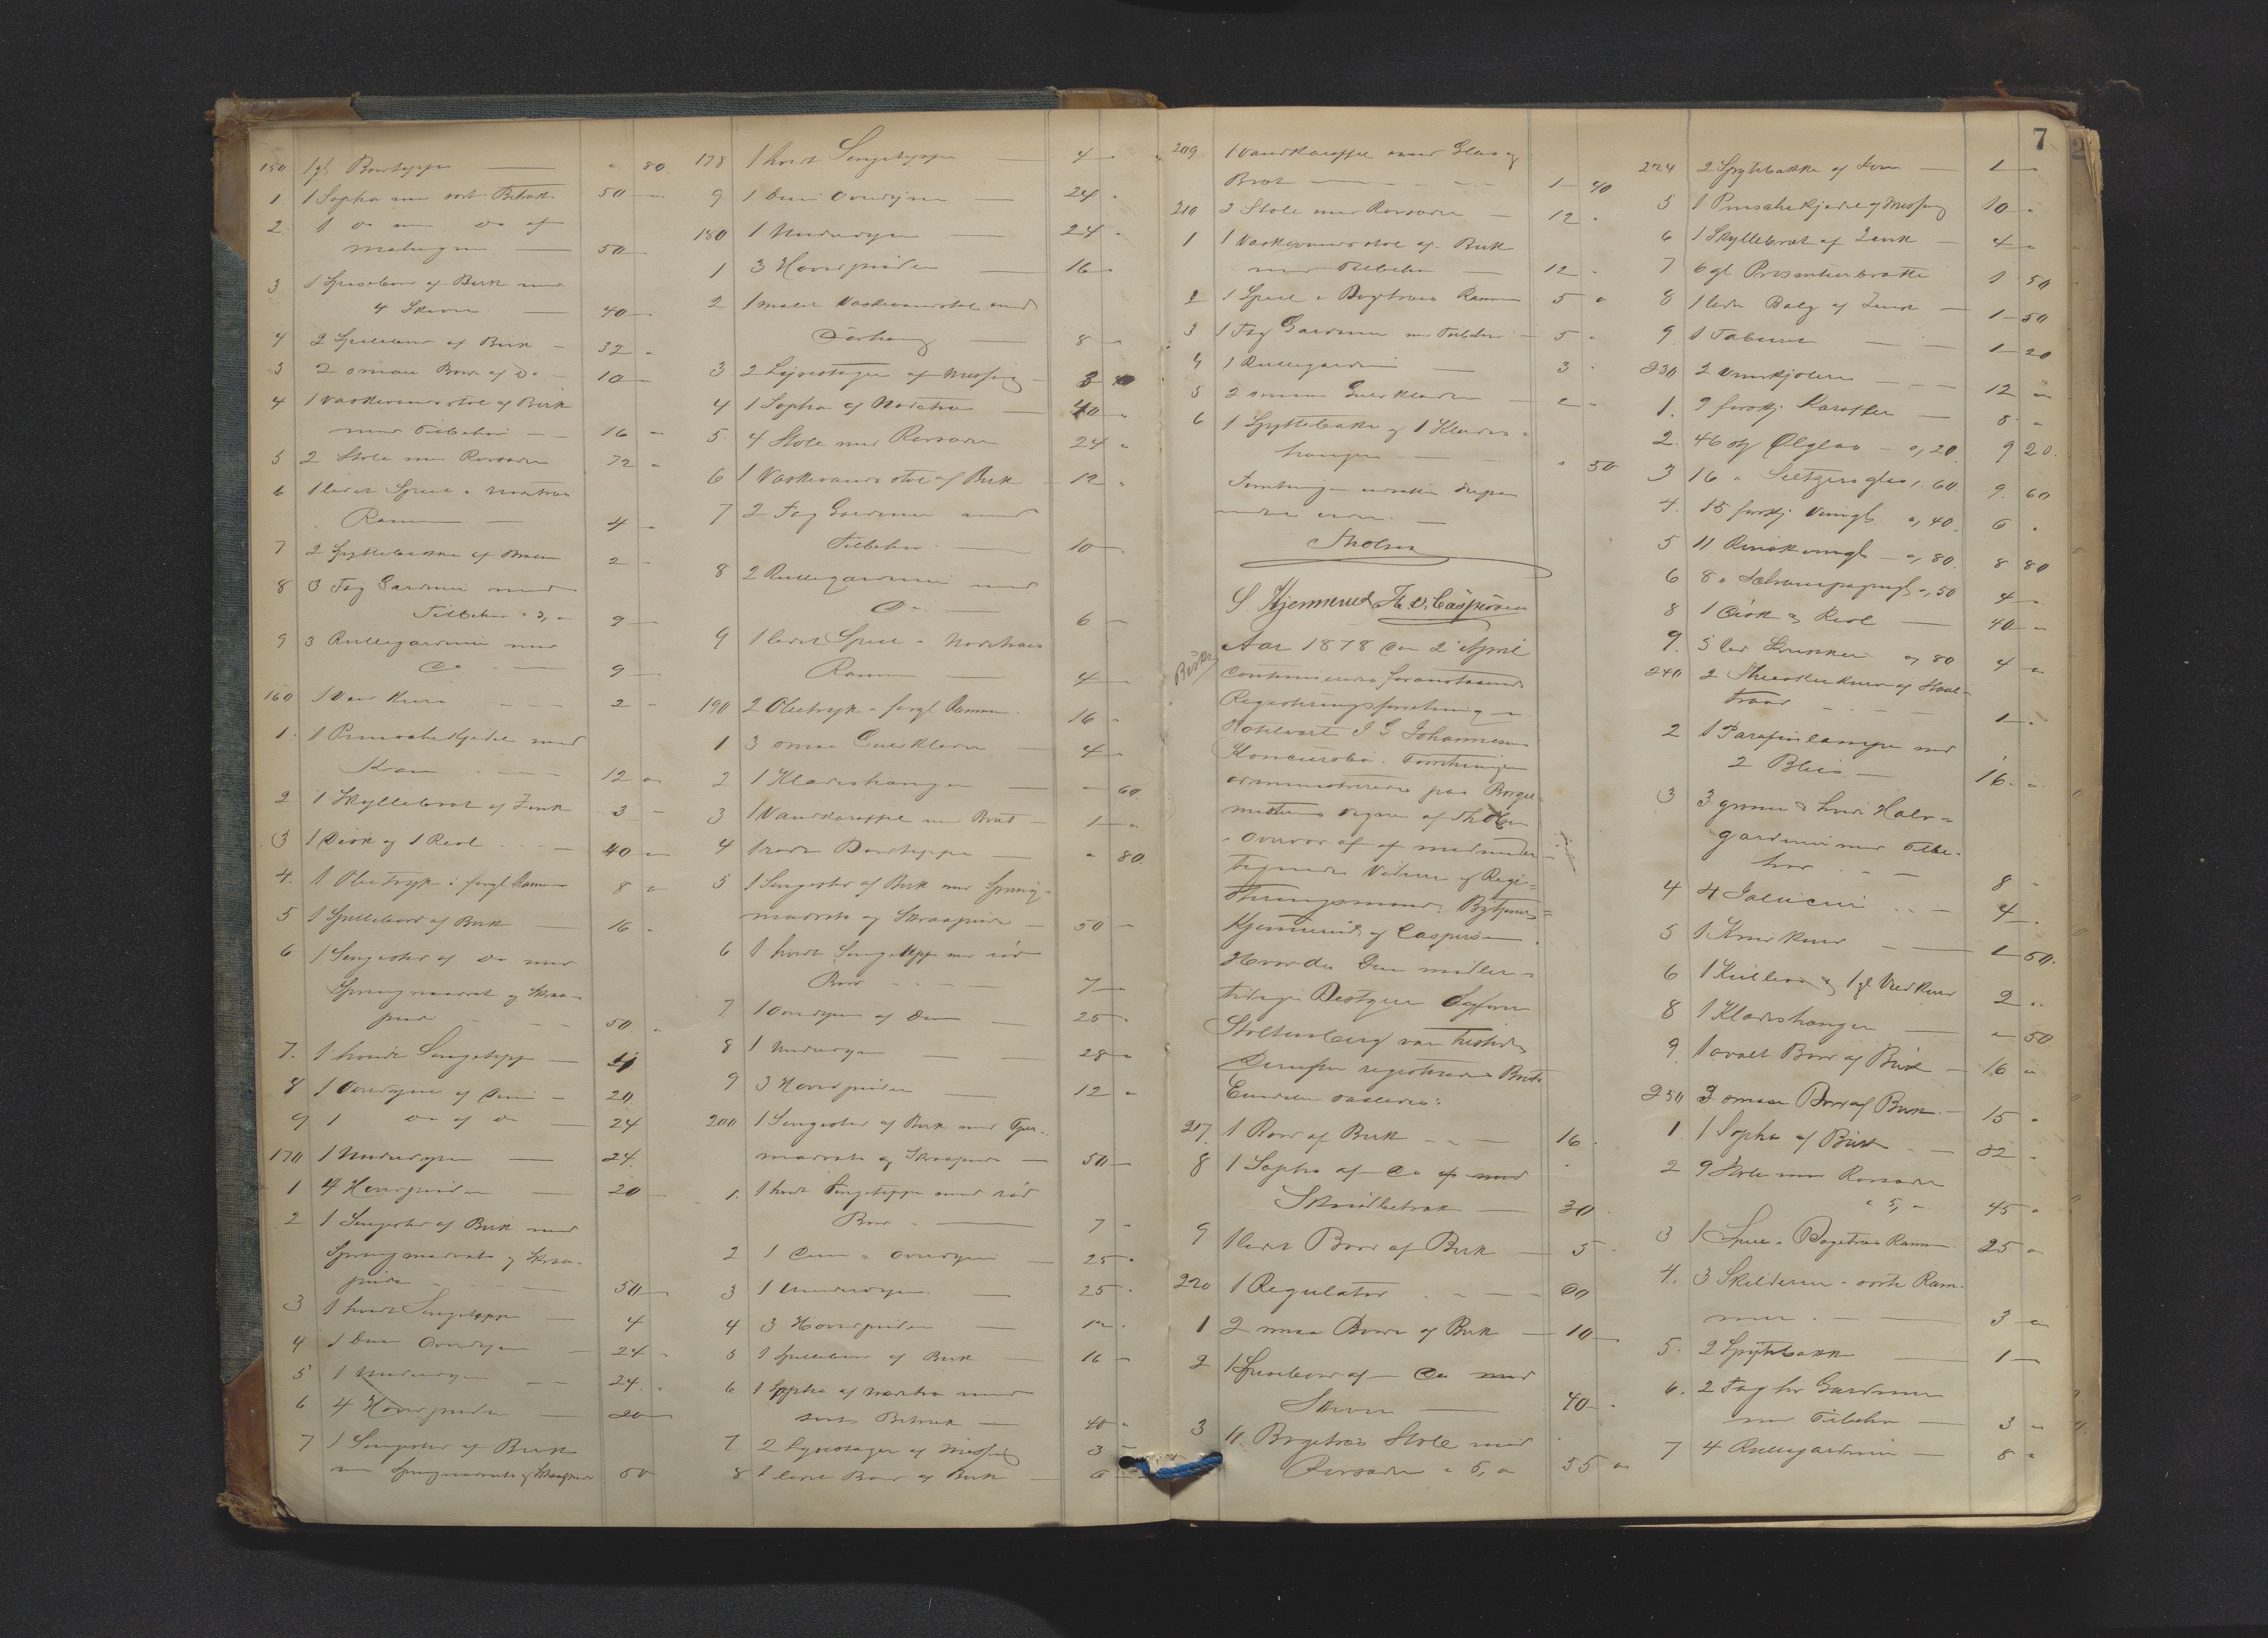 150 1 gl Bordteppe — " 80
1. 1 Sopha med sort Betræk 50 —
2. 1 Do med Do af
mahogni — 50 —
3 1 Spisebord af Birk med
4 Skiver — 40 —
4 2 Spillebord af Birk — 32 —
3 2 smaa Bord af Do — 10 —
4 1 Vaskevandsstol af Birk
med Tilbehør — 16 —
5 2 Stole med Rørsæder 72 "
6 1 lidet Speil i Nøddetræs
Ramme — 4 —
7 2 Spyttebakker af 2 —
8 3 Fag Gardiner med
Tilbehør a 3, " 9 —
9 3 Rullegardiner med
Do — 9 —
160 1 Ved Kurv — 2 —
1. 1 Punschekjedel med
Kran — 12 "
2 1 Skyllebræt af Zink 3 —
3 1 Disk og 1 Reol — 40 "
4. 1 Olietryk i forgl Ramme 8 "
5 1 Spillebord af Birk — 16 "
6 1 Sengested af Do med
Springmadrats og Skraa-
pude — 50 "
7. 1 hvidt Sengeteppe — 4
8 1 Overdyne af Duun — 20
9 1 Do af Do — 24
170 1 Underdyne — 24
1 4 Hovedpuder — 20
2 1 Sengested af Birk med
Springmadrats og Skraa-
pude — 50 —
3 1 hvidt Sengeteppe — 4
4 1 Duun Overdyne — 24 "
5 1 Underdyne — 24 "
6 4 Hovedpuder — 20 —
7 1 Sengested af Birk
med Springmadrats og Skraapude 50
178 1 hvidt Sengeteppe — 4 —
9 1 Duun Overdyne — 24 "
180 1 Underdyne — 24 "
1 3 Hovedpuder — 16 —
2 1 malet Vaskevandsstol med
Forhæng — 8 —
3 2 Lysestager af Messing — 3
4 1 Sopha af Nøddetræ — 40 "
5. 4 Stole med Rørsæder 24 "
6 1 Vaskevandsstol af Birk 12 "
7 2 Fag Gardiner med
Tilbehør — 10 —
8 2 Rullegardiner med
Do — 6 —
9 1 lidet Speil i Nøddetræs
Ramme — 4 —
190 2 Olietryk i forgl Rammer 16 "
1 3 smaa Gulvklæder — 4 —
2 1 Klædeshænger — " 60
3 1 Vandkaraffel med Bræt — 1 "
4 1 rødt Bordteppe — " 80
5 1 Sengested af Birk med Spring-
madrats og Skraapude — 50 —
6 1 hvidt Sengeteppe med rød
Bord — 7 —
7 1 Overdyne af Duun — 25 "
8 1 Underdyne — 28 "
9 3 Hovedpuder — 12 "
200 1 Sengested af Birk med
madrats og Skraapude — 50 —
1. 1 hvidt Sengeteppe med rød
Bord — 7 "
2 1 Duun Overdyne — 25 "
3 1 Underdyne — 25 "
4 3 Hovedpuder — 12 "
5 1 Spillebord af Birk — 16 —
6 1 Sopha af Nøddetræ med
sort Betræk — 40 "
7 2 Lysestager af Messing 3 —
8 1 lidet Bord af Birk — 6 —
209. 1 Vandkaraffel med Glas og
Bræt — 1 — 40
210 2 Stole med Rørsæder — 12 "
1 1 Vaskevandsstol af Birk
med Tilbehør — 12 "
2 1 Speil i Bøgetræs Ramme 5 "
3 1 Fag Gardiner med Tilbehør — 5 "
4 1 Rullegardin — 3 "
5 2 smaa Gulvklæder — 2 —
6 1 Spyttebakke og 1 Klædes-
hænger — " 50
Forretningen udsattes
Tholsen
S. Kjennerud Th. O. Caspersen
Aar 1878 den 2 April
continueredes foranstaaende
Registreringsforretning i
Hotelvært J G Johannesens
Koncursbo. Forretningen
administreredes paa Borger-
mesterens Vegne af Tholsen
i Overvær af medunder-
tegnede Vidner og Regi-
streringsmænd: Bytjener
Kjennerud og Caspersen.
Hvorda Den midler-
tidige Bestyrer Sagfører
Stoltenberg var tilstede
Derefter registreredes Boets
Eiendele saaledes:
217. 1 Bord af Birk — 16 "
8 1 Sopha af Do med
Skindbetræk — 30 "
9 1 lidet Bord af Birk — 5 "
220 1 Regulator — 60
1 2 smaa Borde af Birk — 10 —
2 1 Spisebord af Do med
Skiver — 40 "
3 11 Bøgetræs Stole med
Rørsæder a 5, " 55 "
7
224 2 Spyttebakker af Jern — 1 —
5 1 Punschekjedel af Messing 10 "
6 1 Skyllebræt af Zink — 4 "
7 6 gl Presenteerbrætte 1 50
8 1 liden Balg af Zink — 1 — 50
9. 1 Taburet — 1 — 20
230 2 Viinkjølere — 12 "
1. 9 forskj. Karafler — 8 "
2. 46 stk Ølglas — a, 20 9 20.
3 16 " Seltzersglas, 60. 9. 60
4. 15 forskj Viingl a, 40. 6 "
5 11 Rinskviingl — a, 80. 8 80
6 8 " Schampagnegl a, 50 4 —
8 1 Disk og Reol — 40 —
9. 5 a, 80 4 "
240 2 af Staal-
traad — 1 "
2 1 Parafinlampe med
2 Blus — 16 "
3 3 grønne & hvide Halv-
gardiner med Tilbe-
hør — 8 "
4 4 Jalusier — 4 —
5 1 Kniv Kurv — 1 50.
6 1 og 1 gl Ved Kurv 2 "
8 1 Klædeshænger — " 50
9. 1 ovalt Bord af Birk — 16 "
250 3 smaa Bord af Birk — 15 "
1. 1 Sopha af Birk — 32 "
2 9 Stole med Rørsæder
a 5, " 45 "
3 1 Speil i Bøgetræs Ramme 25 "
4. 3 Skilderier i sorte Ram-
mer — 3 "
5. 2 Spyttebakker — 1 —
6. 2 Fag hv Gardiner
med Tilbehør — 3 "
7 4 Rullegardiner — 8 "